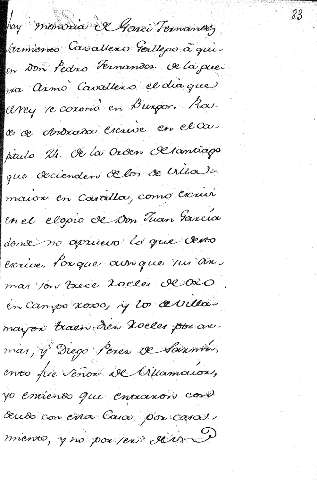 83
hay memoria de Garci Fernandez
Sarmiento Cavallero Gallego â qui-
en Don Pedro Fernandez de la gue-
rra Armó Cavallero el dia que
el Rey se coronó en Burgos. Ra-
de de Andrada escrive en el Ca-
pitulo 24. de la Orden de Santiago
que decienden de los de Villa-
maior en Castilla, como escriví
en el elogio de Don Juan García
donde no apruevo lo que desto
escrive. Porque aunque sus ar-
mas son trece Roeles de Oro
en Campo roxo, y los de Villa-
mayor traen diez Roeles por ar-
mas, y Diego Perez de Sarmi-
ento fue Señor de Villamaior,
yo entiendo que entraron con
deudo con esta Casa por casa-
miento, y no por ser de